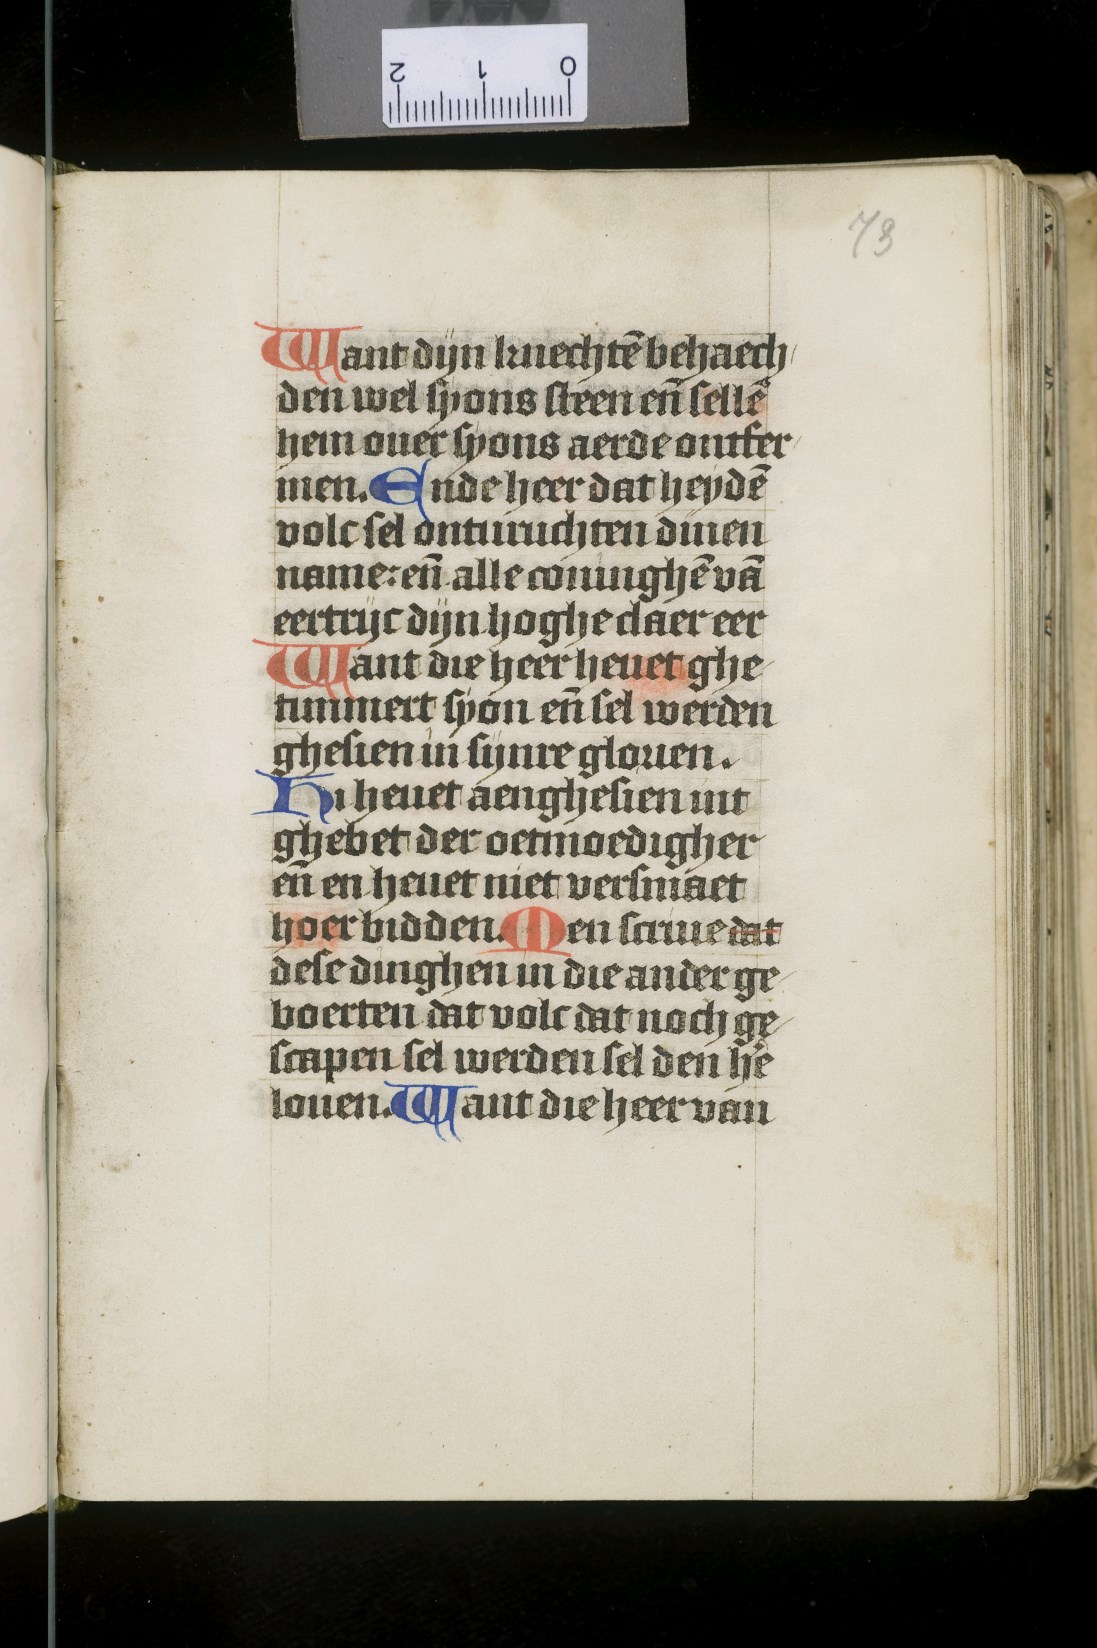 2 1 0
73
Want dijn knechtē behaech
den wel syons steen eñ sellē
hem ouer syons aerde ontfer
men. Ende heer dat heydē
volc sel onturuchten dinen
name: eñ alle coninghē vā
eertrijc dijn hoghe claer eer
Want die heer heuet ghe
timmert syon eñ sel werden
ghesien in sijnre glorien.
Hi heuet aenghesien int
ghebet der oetmoedigher
eñ en heuet niet versmaet
hoer bidden. Men scriue dat
dese dinghen in die ander ge
boerten dat volc dat noch ge
scapen sel werden sel den he
louen. Want die heer van